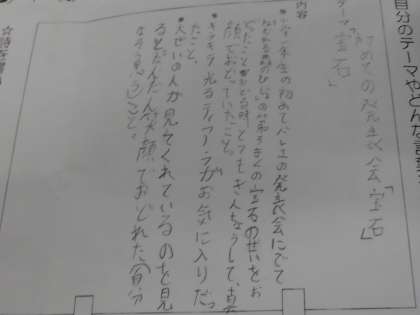 自分のテーマやどんな言葉
テーマ「初めての発表会「宝石」
宝石」
内容
年生の初めてバレエの発表会にでて
ねむれる森のびじょの第
宝石のせいをお
どったこと
時、とてもきんちょうして、真
顔でおどっていたこと。
キラキラ光るティアラがお気に入りだっ
たこと。
大ぜいの人が見てくれているのを見
るとだんだん笑顔でおどれた(自分
なりう思うこと。
☆詩を書